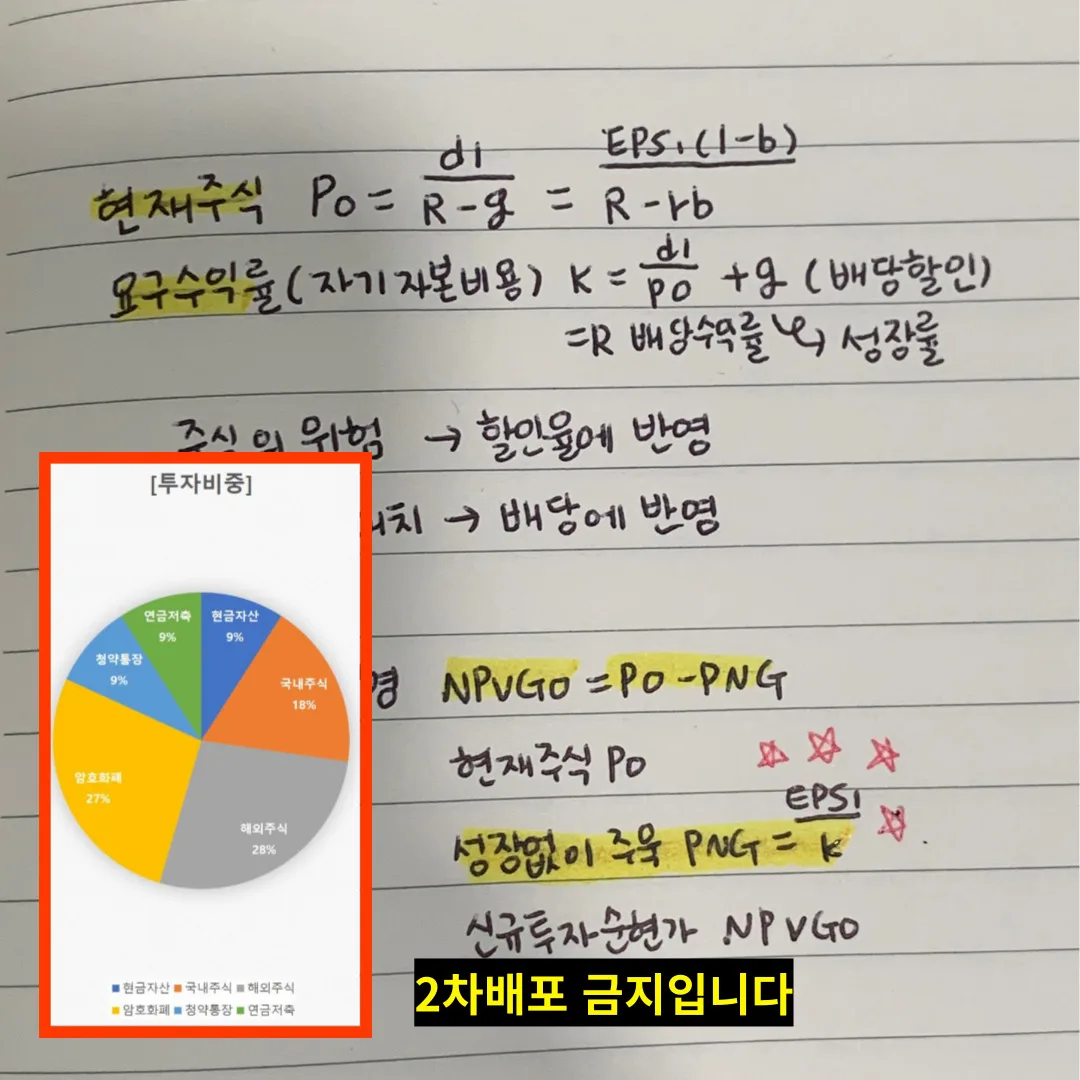 현재주식 P0 = d1/(R-g) = EPS1(1-b)/(R-rb)
요구수익률(자기자본비용) k = d1/p0 + g (배당할인)
=R 배당수익률 ↳ 성장률
주식의 위험 → 할인율에 반영
치 → 배당에 반영
[투자비중]
연금저축 9%
현금자산 9%
청약통장 9%
국내주식 18%
암호화폐 27%
해외주식 28%
현금자산 국내주식 해외주식
암호화폐 청약통장 연금저축
NPVGO = P0 - PNG
현재주식 P0
성장없이 주욱 PNG = EPS1/k
신규투자순현가 NPVGO
2차배포 금지입니다